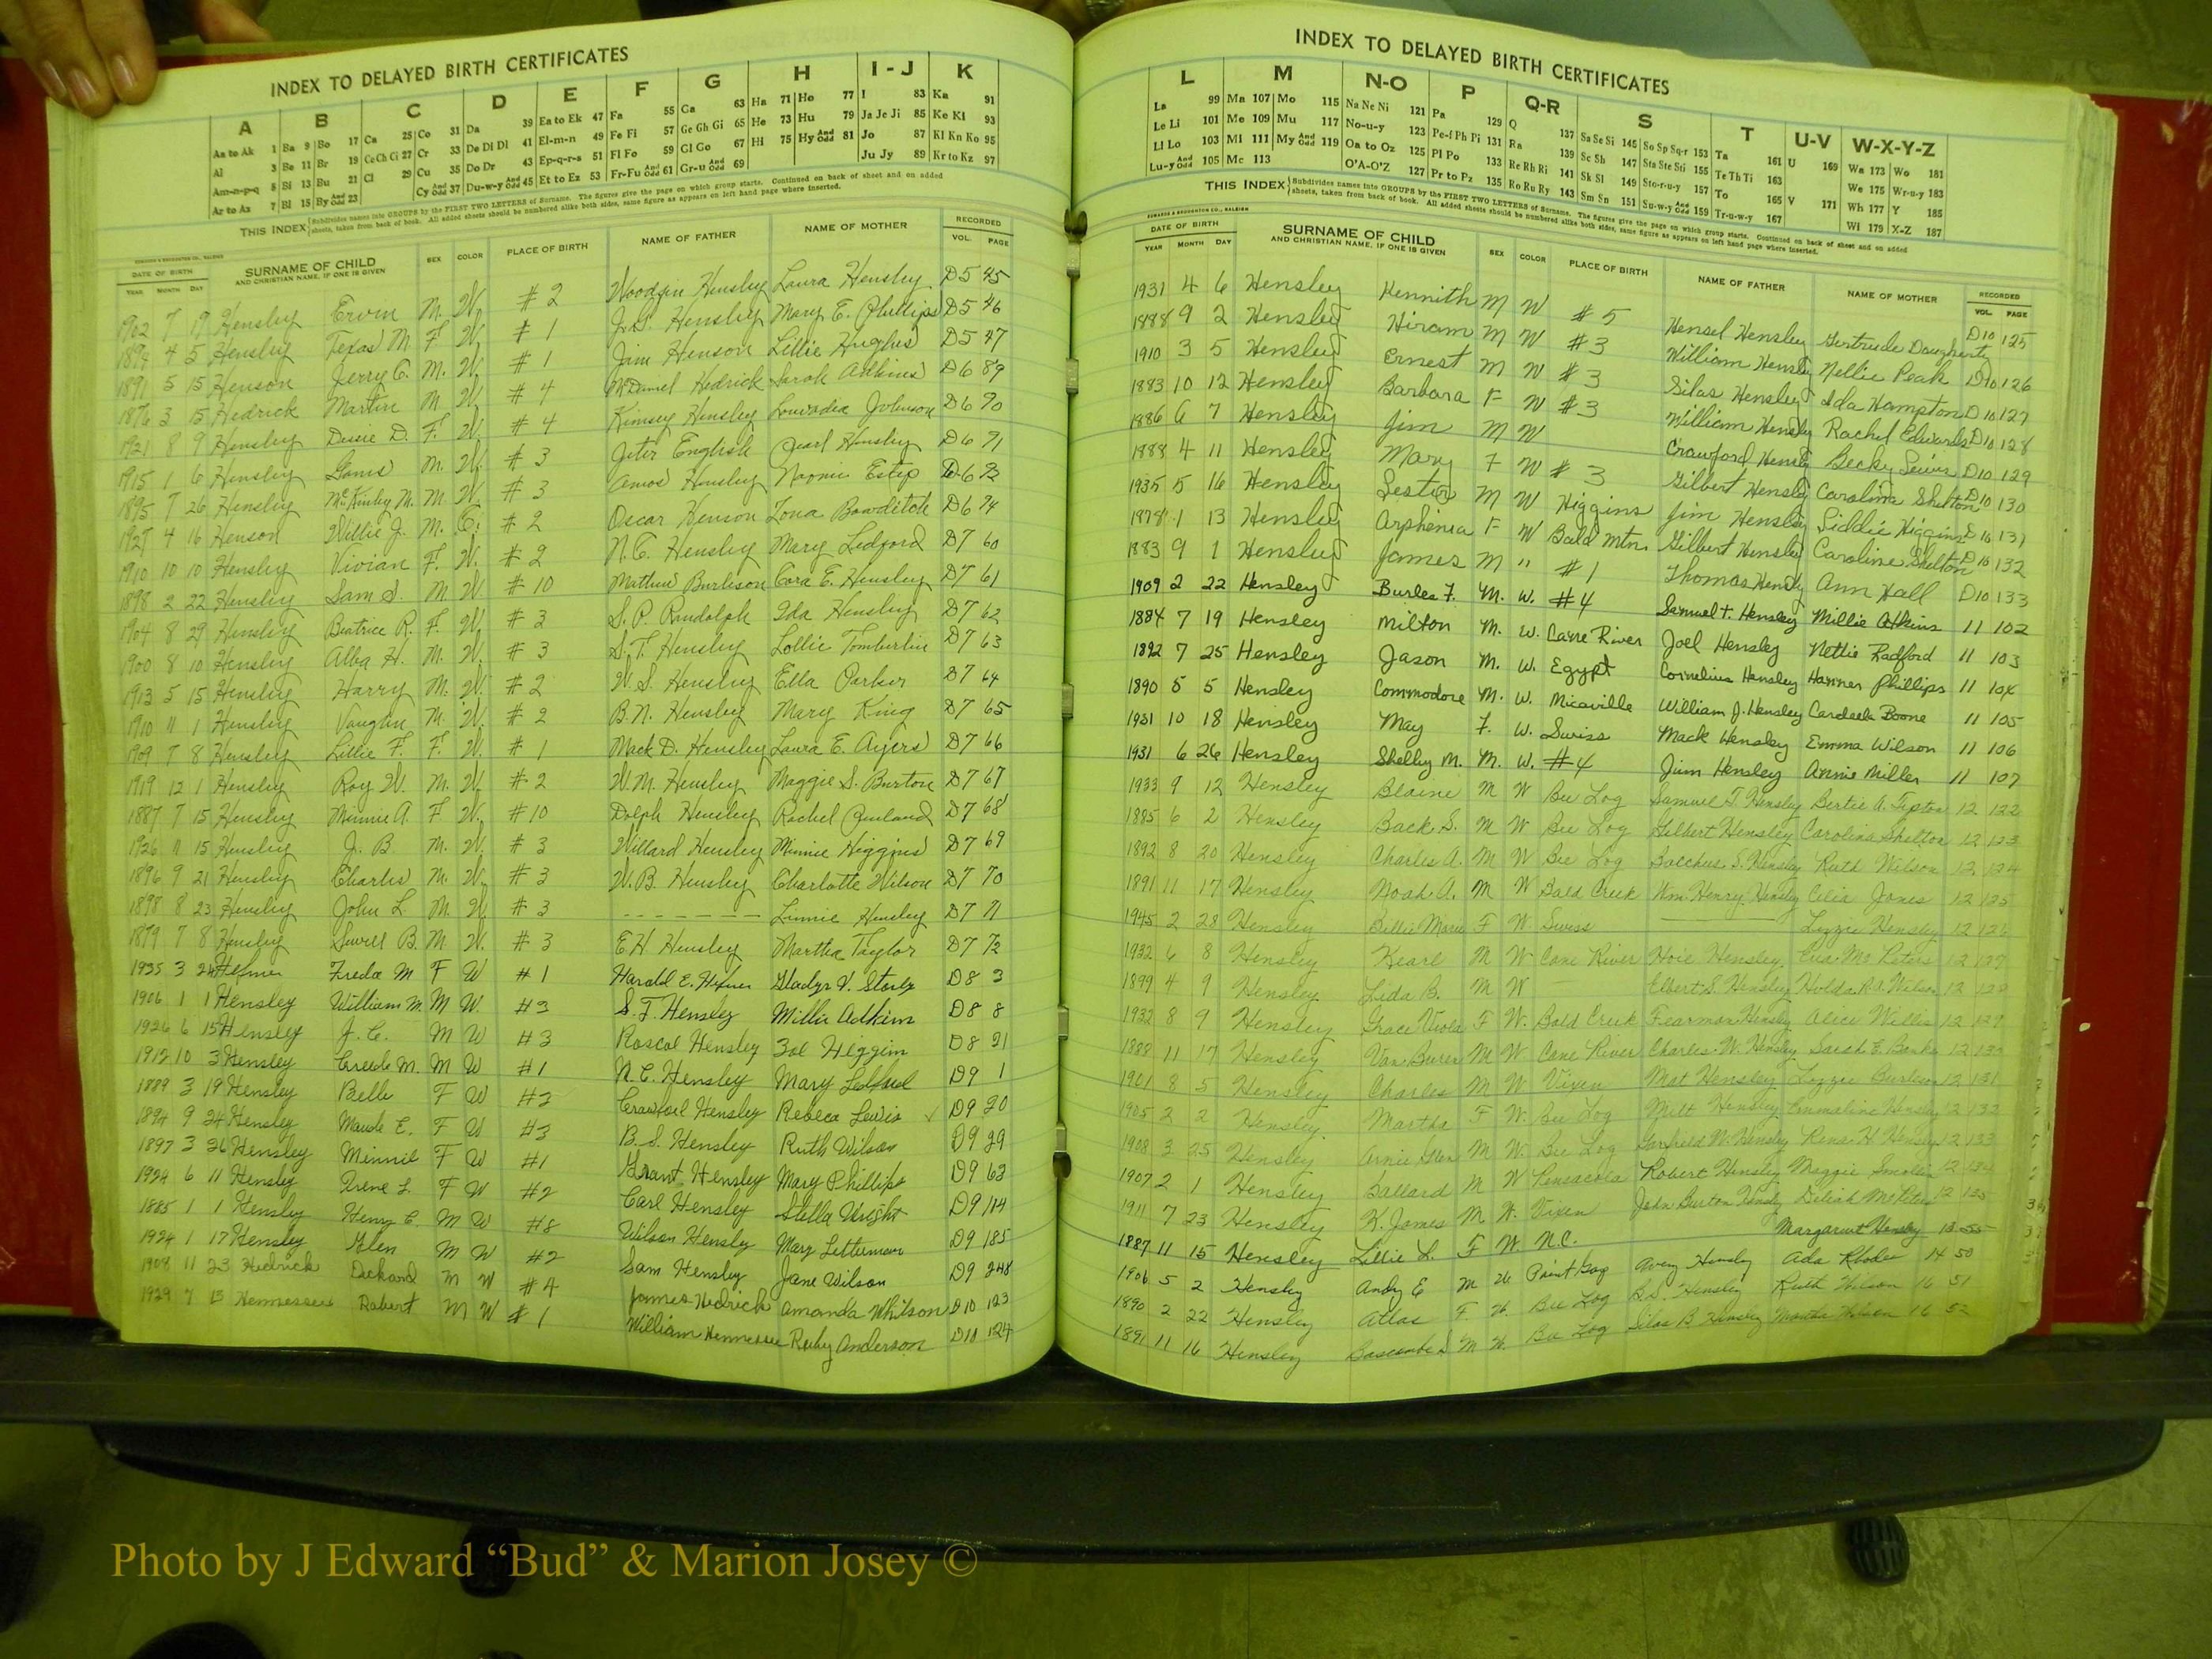 INDEX TO DELAYED BIRTH CERTIFICATES
A B C D E F G H I-J K
Aa to Ak 1 Ba 9 Bo 17 Ca 25 Co 31 Da 39 Ea to Ek 47 Fa 55 Ga 63 Ha 71 Ho 77 I 83 Ka 91
Al 3 Be 11 Br 19 Ce Ch Ci 27 Cr 33 De Di Dl 41 El-m-n 49 Fe Fi 57 Ge Gh Gi 65 He 73 Hu 79 Ja Je Ji 85 Ke Ki 93
Am-n-p-q 5 Bi 13 Bu 21 Cl 29 Cu 35 Do Dr 43 Ep-q-r-s 51 Fl Fo 59 Gl Go 67 Hi 75 Hy And Odd 81 Jo 87 Kl Kn Ko 95
Ar to Az 7 Bl 15 By And Odd 23 Cy And Odd 37 Du-w-y And Odd 45 Et to Ez 53 Fr-Fu And Odd 61 Gr-u And Odd 69 Ju Jy 89 Kr to Kz 97
THIS INDEX Subdivides names into GROUPS by the FIRST TWO LETTERS of Surname. The figures give the page on which group starts. Continued on back of sheet and on added sheets, taken from back of book. All added sheets should be numbered alike both sides, same figure as appears on left hand page where inserted.
DATE OF BIRTH YEAR MONTH DAY SURNAME OF CHILD AND CHRISTIAN NAME, IF ONE IS GIVEN SEX COLOR PLACE OF BIRTH NAME OF FATHER NAME OF MOTHER RECORDED VOL. PAGE
1902 7 19 Hensley Ervin M. W. #2 Woodson Hensley Laura Hensley D5 45
1894 4 5 Hensley Texas M. F. W. #1 J.S. Hensley Mary E. Phillips D5 46
1891 5 15 Henson Jerry C. M. W. #1 Jim Henson Lillie Hughes D5 47
1876 3 15 Hedrick Martin M W. #4 McDaniel Hedrick Sarah Adkins D6 89
1921 8 9 Hensley Dessie D. F. W. #4 Kimsey Hensley Louvadia Johnson D6 70
1915 1 6 Hensley M. W. #3 Jeter English Pearl Hensley D6 71
1895 7 26 Hensley McKinley M. M. W. #3 Amos Hensley Naomi Estep D6 72
1927 4 16 Henson Willie J. M. C. #2 Oscar Henson Zona Bowditch D6 74
1910 10 10 Hensley Vivian F. W. #2 N.C. Hensley Mary Ledford D7 60
1898 2 22 Hensley Sam S. M W. #10 Matthew Burleson Cora E. Hensley D7 61
1904 8 29 Hensley Beatrice R. F. W. #3 S.P. Randolph Ida Hensley D7 62
1900 8 10 Hensley Alba H. M. W. #3 S.T. Hensley Lollie Tomberlin D7 63
1913 5 15 Hensley Harry M. W. #2 W.S. Hensley Ella Parker D7 64
1910 11 1 Hensley Vaughn M. W. #2 B.N. Hensley Mary King D7 65
1909 7 8 Hensley Lillie F. F. W. #1 Mack D. Hensley Laura E. Ayers D7 66
1919 12 1 Hensley Roy W. M. W. #2 W.M. Hensley Maggie S. Burton D7 67
1887 7 15 Hensley Minnie A. F. W. #10 Dolph Hensley Rachel D7 68
1926 11 15 Hensley J.B. M. W. #3 Willard Hensley Minnie Higgins D7 69
1896 9 21 Hensley Charles M. W. #3 W.B. Hensley Charlotte Wilson D7 70
1898 8 23 Hensley John L. M. W. #3 - - - - - - - Linnie Hensley D7 71
1879 7 8 Hensley Sewell B. M W. #3 E.H. Hensley Martha Taylor D7 72
1935 3 24 Hefner Freda M F W #1 Harald E. Hefner Gladys V. D8 3
1906 1 1 Hensley William M. M W. #3 S.T. Hensley Millie Adkins D8 8
1926 6 15 Hensley J.C. M W #3 Roscoe Hensley Zoe Higgins D8 21
1912 10 3 Hensley Creede M. M W #1 N.C. Hensley Mary Ledford D9 1
1889 3 19 Hensley Belle F W #2 Crawford Hensley Rebeca Lewis D9 20
1894 9 24 Hensley Maude E. F W #3 B.S. Hensley Ruth Wilson D9 29
1897 3 26 Hensley Minnie F W #1 Grant Hensley Mary Phillips D9 63
1924 6 11 Hensley Irene L. F W #2 Carl Hensley Stella Wright D9 114
1885 1 1 Hensley Henry C. M W #8 Wilson Hensley Mary Letterman D9 185
1924 1 17 Hensley Glen M W #2 Sam Hensley Jane Wilson D9 248
1908 11 23 Hedrick Dickard M W #4 James Hedrick Amanda Whitson D10 123
1929 7 13 Hennessee Robert M W #1 William Hennessee Ruby Anderson D10 124
INDEX TO DELAYED BIRTH CERTIFICATES
L M N-O P Q-R S T U-V W-X-Y-Z
La 99 Ma 107 Mo 115 Na Ne Ni 121 Pa 129 Q 137 Sa Se Si 145 So Sp Sq-r 153 Ta 161 U 169 Wa 173 Wo 181
Le Li 101 Me 109 Mu 117 No-u-y 123 Pe-f Ph Pi 131 Ra 139 Sc Sh 147 Sta Ste Sti 155 Te Th Ti 163 We 175 Wr-u-y 183
Ll Lo 103 Mi 111 My And Odd 119 Oa to Oz 125 Pl Po 133 Re Rh Ri 141 Sk Sl 149 Sto-r-u-y 157 To 165 V 171 Wh 177 Y 185
Lu-y And Odd 105 Mc 113 O'A-O'Z 127 Pr to Pz 135 Ro Ru Ry 143 Sm Sn 151 Su-w-y And Odd 159 Tr-u-w-y 167 Wi 179 X-Z 187
THIS INDEX Subdivides names into GROUPS by the FIRST TWO LETTERS of Surname. The figures give the page on which group starts. Continued on back of sheet and on added sheets, taken from back of book. All added sheets should be numbered alike both sides, same figure as appears on left hand page where inserted.
EDWARDS & BROUGHTON CO., RALEIGH
DATE OF BIRTH YEAR MONTH DAY SURNAME OF CHILD AND CHRISTIAN NAME, IF ONE IS GIVEN SEX COLOR PLACE OF BIRTH NAME OF FATHER NAME OF MOTHER RECORDED VOL. PAGE
1931 4 6 Hensley Kennith M W #5 Hensel Hensley Gertrude Dougherty D10 125
1888 9 2 Hensley Hiram M W #3 William Hensley Nellie Peak D10 126
1910 3 5 Hensley Ernest M W #3 Silas Hensley Ida Hampton D10 127
1883 10 12 Hensley Barbara F W #3 William Hensley Rachel Edwards D10 128
1886 6 7 Hensley Jim M W Crawford Hensley Becky Lewis D10 129
1888 4 11 Hensley Mary F W #3 Gilbert Hensley Carolina Shelton D10 130
1935 5 16 Hensley Lester M W Higgins Jim Hensley Siddie Higgins D10 131
1878 1 13 Hensley Arphenia F W Bald Mtn. Gilbert Hensley Caroline Shelton D10 132
1883 9 1 Hensley James M " #1 Thomas Hensley Ann Hall D10 133
1909 2 22 Hensley Burles F. M. W. #4 Samuel T. Hensley Millie Atkins 11 102
1884 7 19 Hensley Milton M. W. Cane River Joel Hensley Nettie Radford 11 103
1892 7 25 Hensley Jason M. W. Egypt Cornelius Hensley Hanner Phillips 11 104
1890 5 5 Hensley Commodore M. W. Micaville William J. Hensley Boone 11 105
1931 10 18 Hensley May F. W. Swiss Mack Hensley Emma Wilson 11 106
1931 6 26 Hensley Shelby M. M. W. #4 Jim Hensley Annie Miller 11 107
1933 9 12 Hensley Blaine M W Bee Log Samuel T. Hensley Bertie A. Tipton 12 122
1885 6 2 Hensley Back S. M W Bee Log Gilbert Hensley Carolina Shelton 12 123
1892 8 20 Hensley Charles A. M W Bee Log Bacchus S. Hensley Ruth Wilson 12 124
1891 11 17 Hensley Noah A. M W Bald Creek Wm. Henry Hensley Celia Jones 12 125
1945 2 28 Hensley Billie Marie F W. Swiss Lizzie Hensley 12 126
1932 6 8 Hensley Kearl M W Cane River Hoie Hensley McPeters 12 127
1899 4 9 Hensley Lida B. M W Elbert S. Hensley Hulda R.A. Wilson 12 128
1932 8 9 Hensley Grace Viola F W. Bald Creek Fearman Hensley Alice Willis 12 129
1888 11 17 Hensley Van Buren M W. Cane River Charles W. Hensley Sarah E. Banks 12 130
1901 8 5 Hensley Charles M W Vixen Mat Hensley Lizzie Burleson 12 131
1905 2 2 Hensley Martha F W. Bee Log Milt Hensley Emmaline Hensley 12 132
1908 3 25 Hensley Arnie Glen M W. Bee Log Garfield W. Hensley Rena H. Hensley 12 133
1907 2 1 Hensley Ballard M W Pensacola Robert Hensley Maggie 12 134
1911 7 23 Hensley K. James M W. Vixen John Burton Hensley Deliah McPeters 12 135
1887 11 15 Hensley Lillie L. F W. N.C. Margaret Hensley 13 55
1906 5 2 Hensley Andy E M W Paint Gap Avery Hensley Ada Rhodes 14 50
1890 2 22 Hensley Atlas F W. Bee Log B.S. Hensley Ruth Wilson 16 51
1891 11 16 Hensley Bascombe S M W. Bee Log Silas B Hensley Martha Wilson 16 52
Photo by J Edward “Bud” & Marion Josey ©